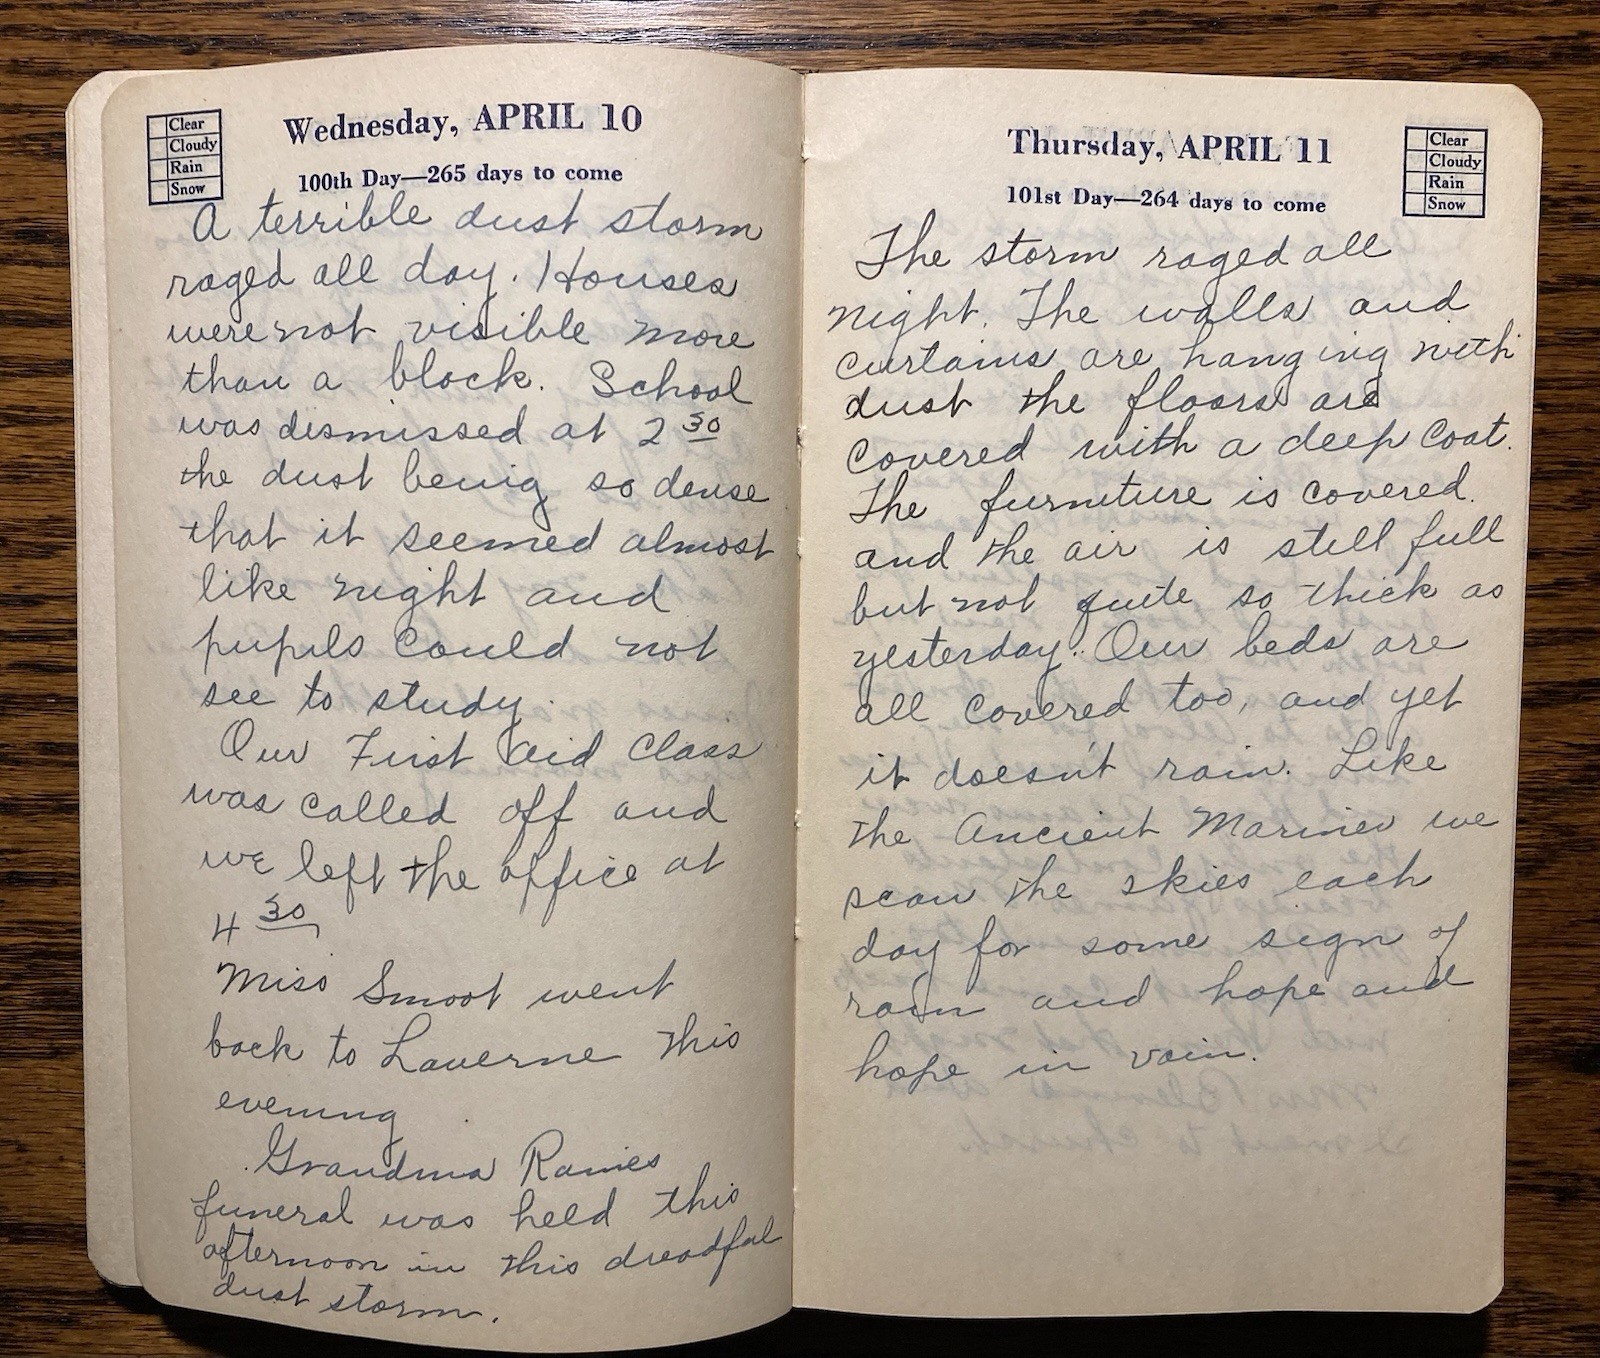 Clear
Cloudy
Rain
Snow
Wednesday, APRIL 10
100th Day—265 days to come
A terrible dust storm
raged all day. Houses
were not visible more
than a block. School
was dismissed at 2 30
the dust being so dense
that it seemed almost
like night and
pupils could not
see to study.
Our First Aid Class
was called off and
we left the office at
4 30
Miss Smoot went
back to Laverne this
evening
Grandma Raines
funeral was held this
afternoon in this dreadful
dust storm.
Thursday, APRIL 11
101st Day—264 days to come
Clear
Cloudy
Rain
Snow
The storm raged all
night. The walls and
curtains are hanging with
dust the floors are
covered with a deep coat.
The furniture is covered.
and the air is still full
but not quite so thick as
yesterday. Our beds are
all covered too, and yet
it doesn't rain. Like
the Ancient Mariner we
scan the skies each
day for some sign of
rain and hope and
hope in vain.